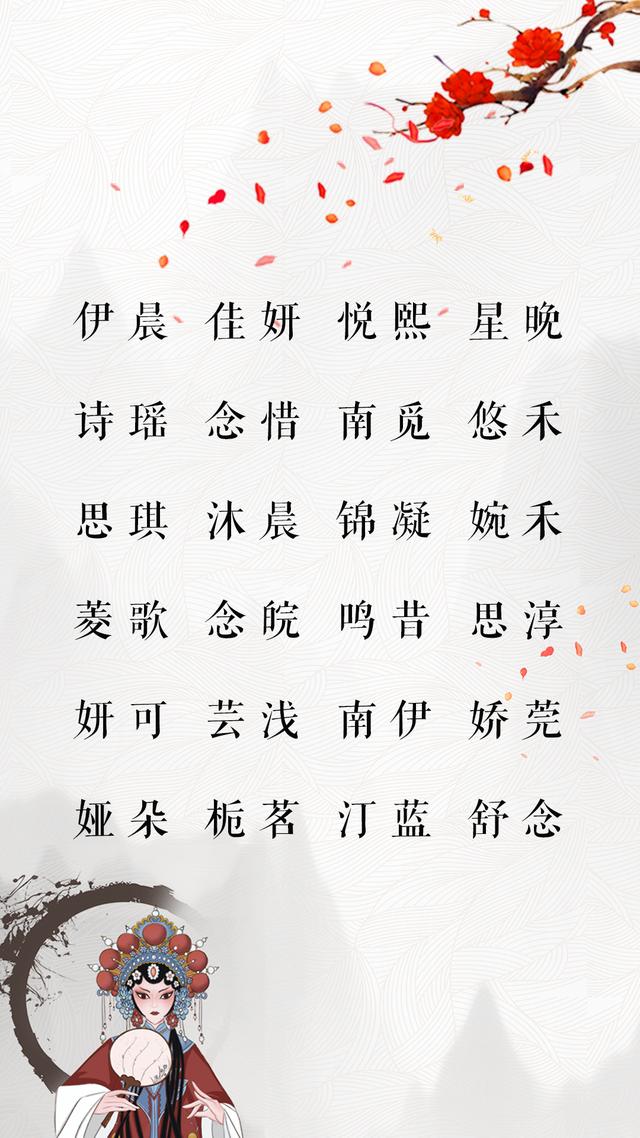 伊晨 佳妍 悦熙 星晚
诗瑶 念惜 南觅 悠禾
思琪 沐晨 锦凝 婉禾
菱歌 念皖 鸣昔 思淳
妍可 芸浅 南伊 娇莞
娅朵 栀茗 汀蓝 舒念